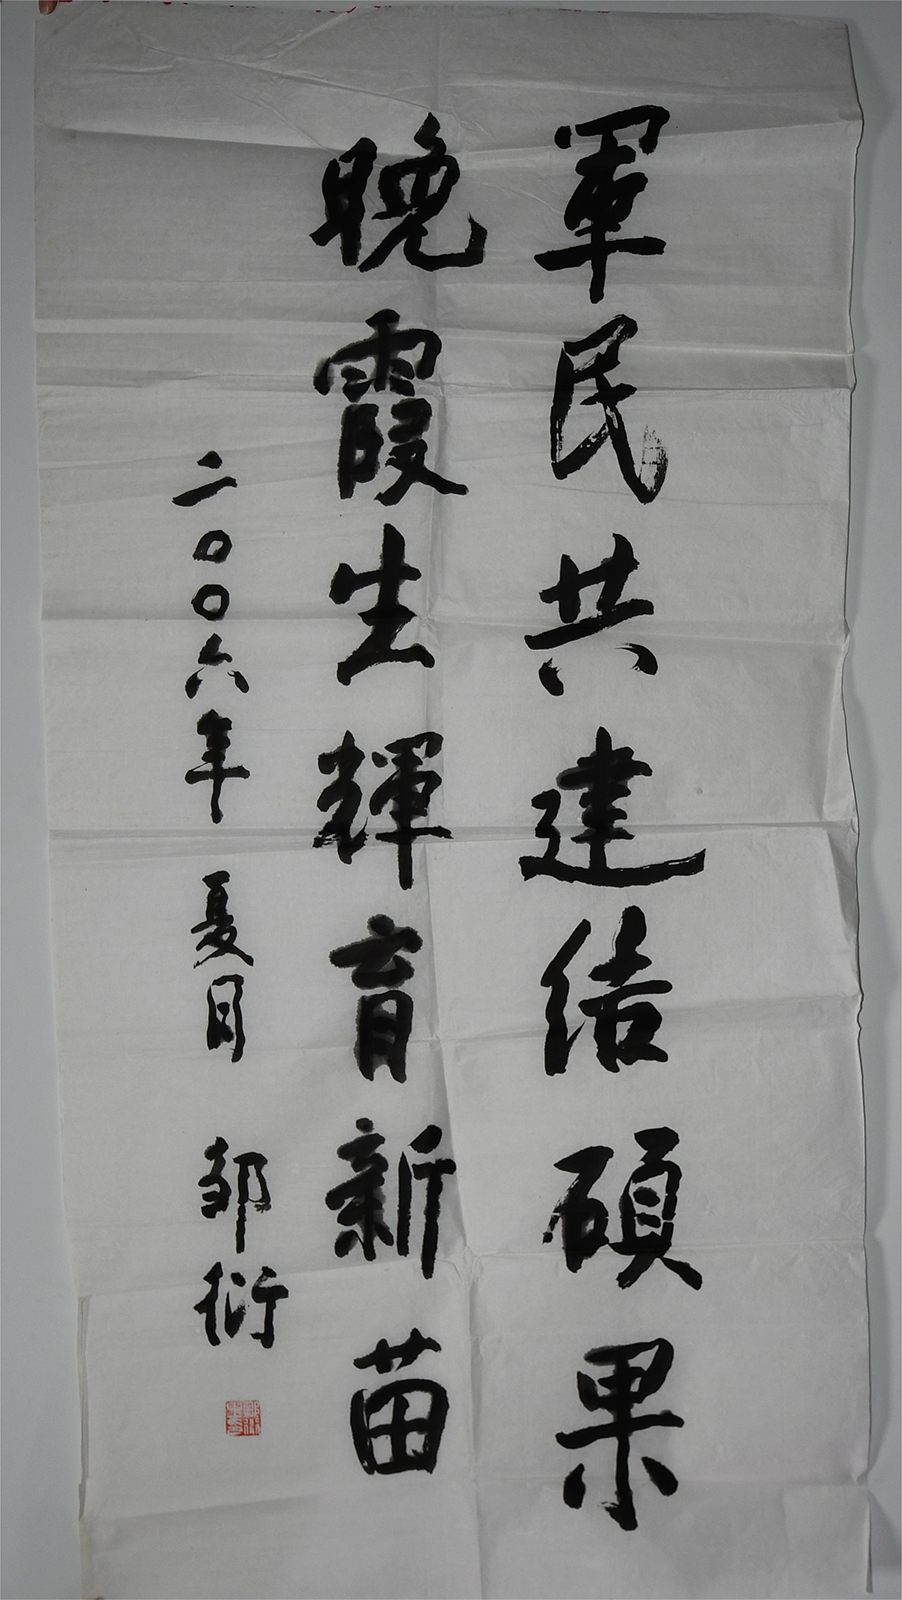 軍民共建结碩果
晚霞生輝育新苗
二〇〇六年夏月 邹衍